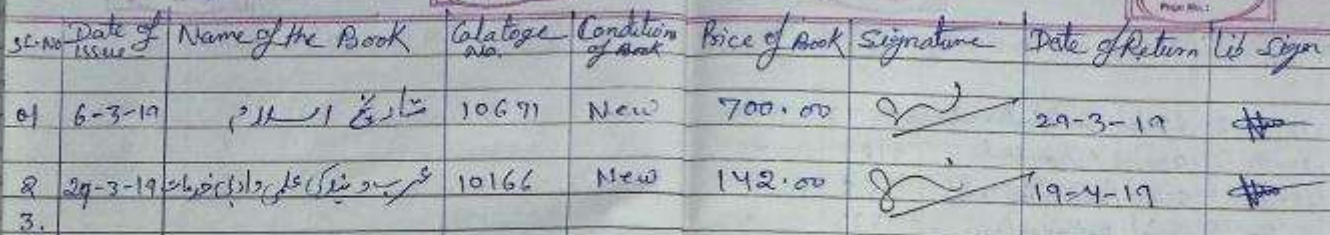 SL.No Date of Issue Name of the Book Catatoge No. Condition of Book Price of Book Signature Date of Return Lib Sign
01 6-3-19 تاریخ اسلام 10671 New 700.00 29-3-19
2 29-3-19 عرب و ہند کی علمی و ادبی خدمات 10166 New 142.00 19-4-19
3.